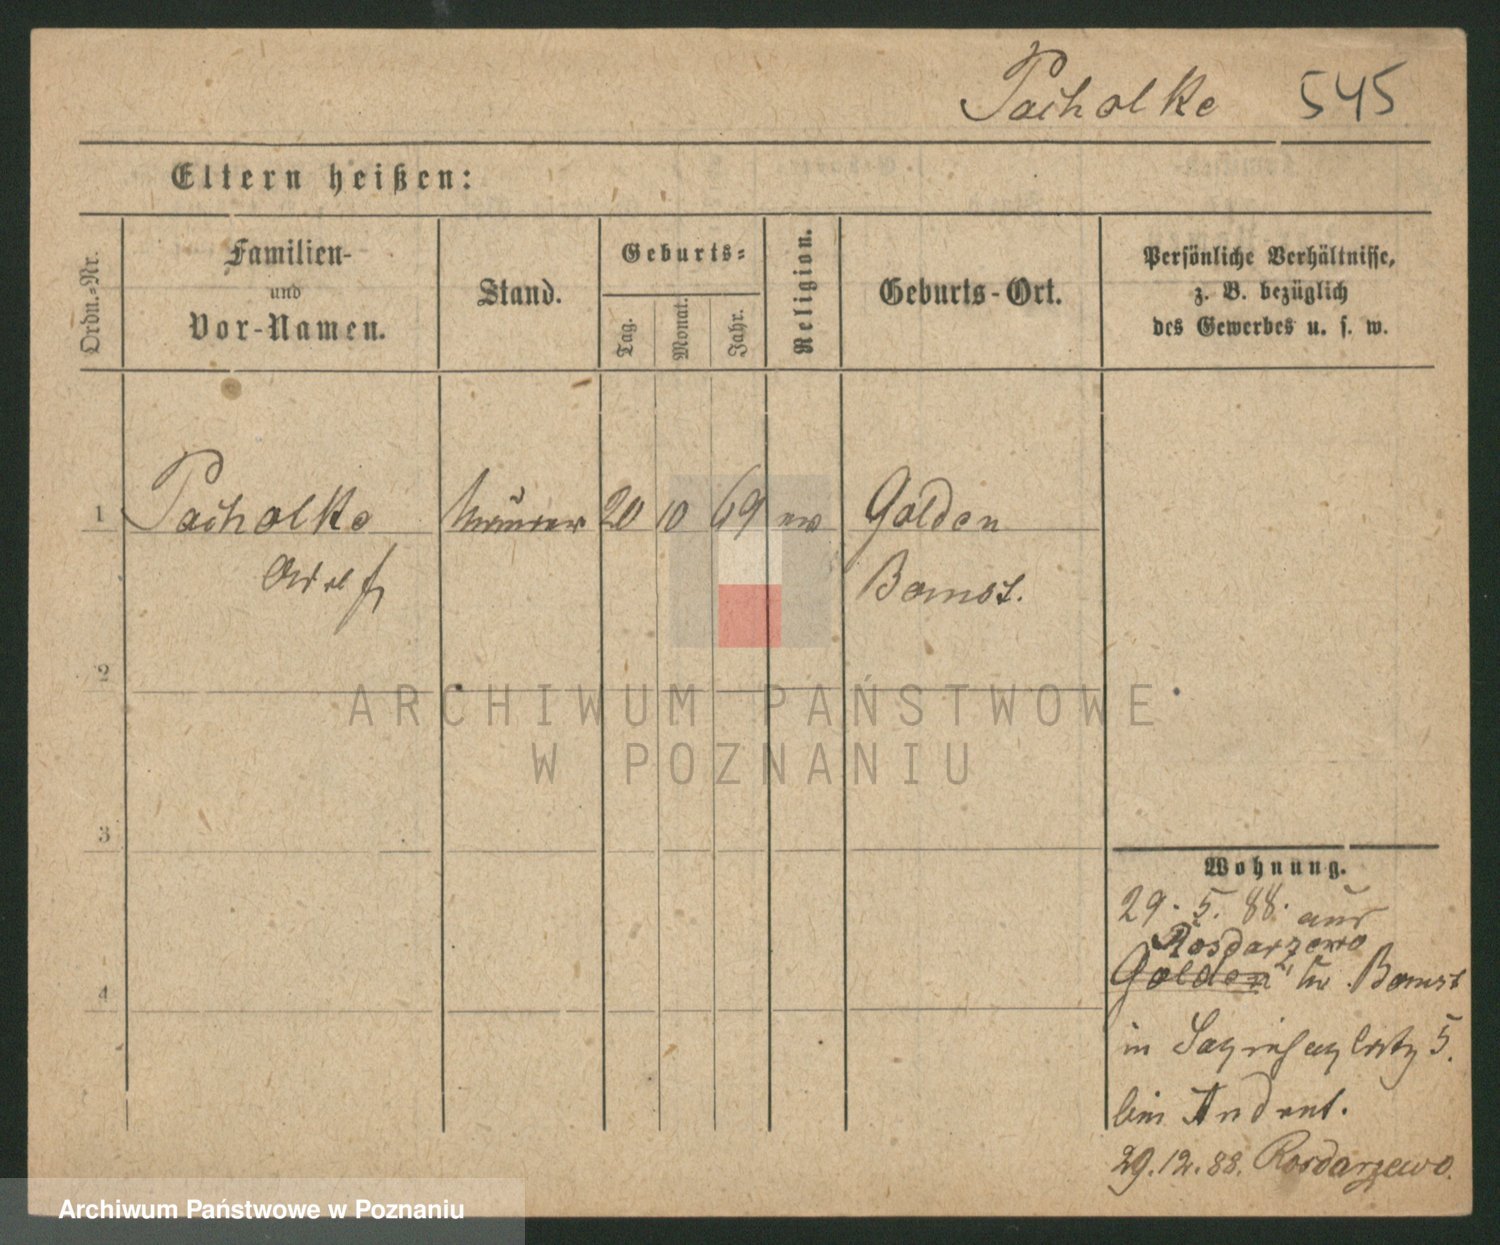 Pacholke 545
Eltern heißen:
Ordn.-Nr.
Familien-
und
Vor-Namen.
Stand.
Geburts-
Tag.
Monat.
Jahr.
Religion.
Geburts-Ort.
Persönliche Verhältnisse,
z. B. bezüglich
des Gewerbes u. s. w.
1 Pacholke Maurer 20 10 69 ev Golden
Adolf Bomst.
2
3
4
Wohnung.
29. 5. 88. aus
Rosdarzewo
Golden Kr. Bomst
in 5.
bei
29.12.88. Rosdarzewo.
ARCHIWUM PAŃSTWOWE
W POZNANIU
Archiwum Państwowe w Poznaniu